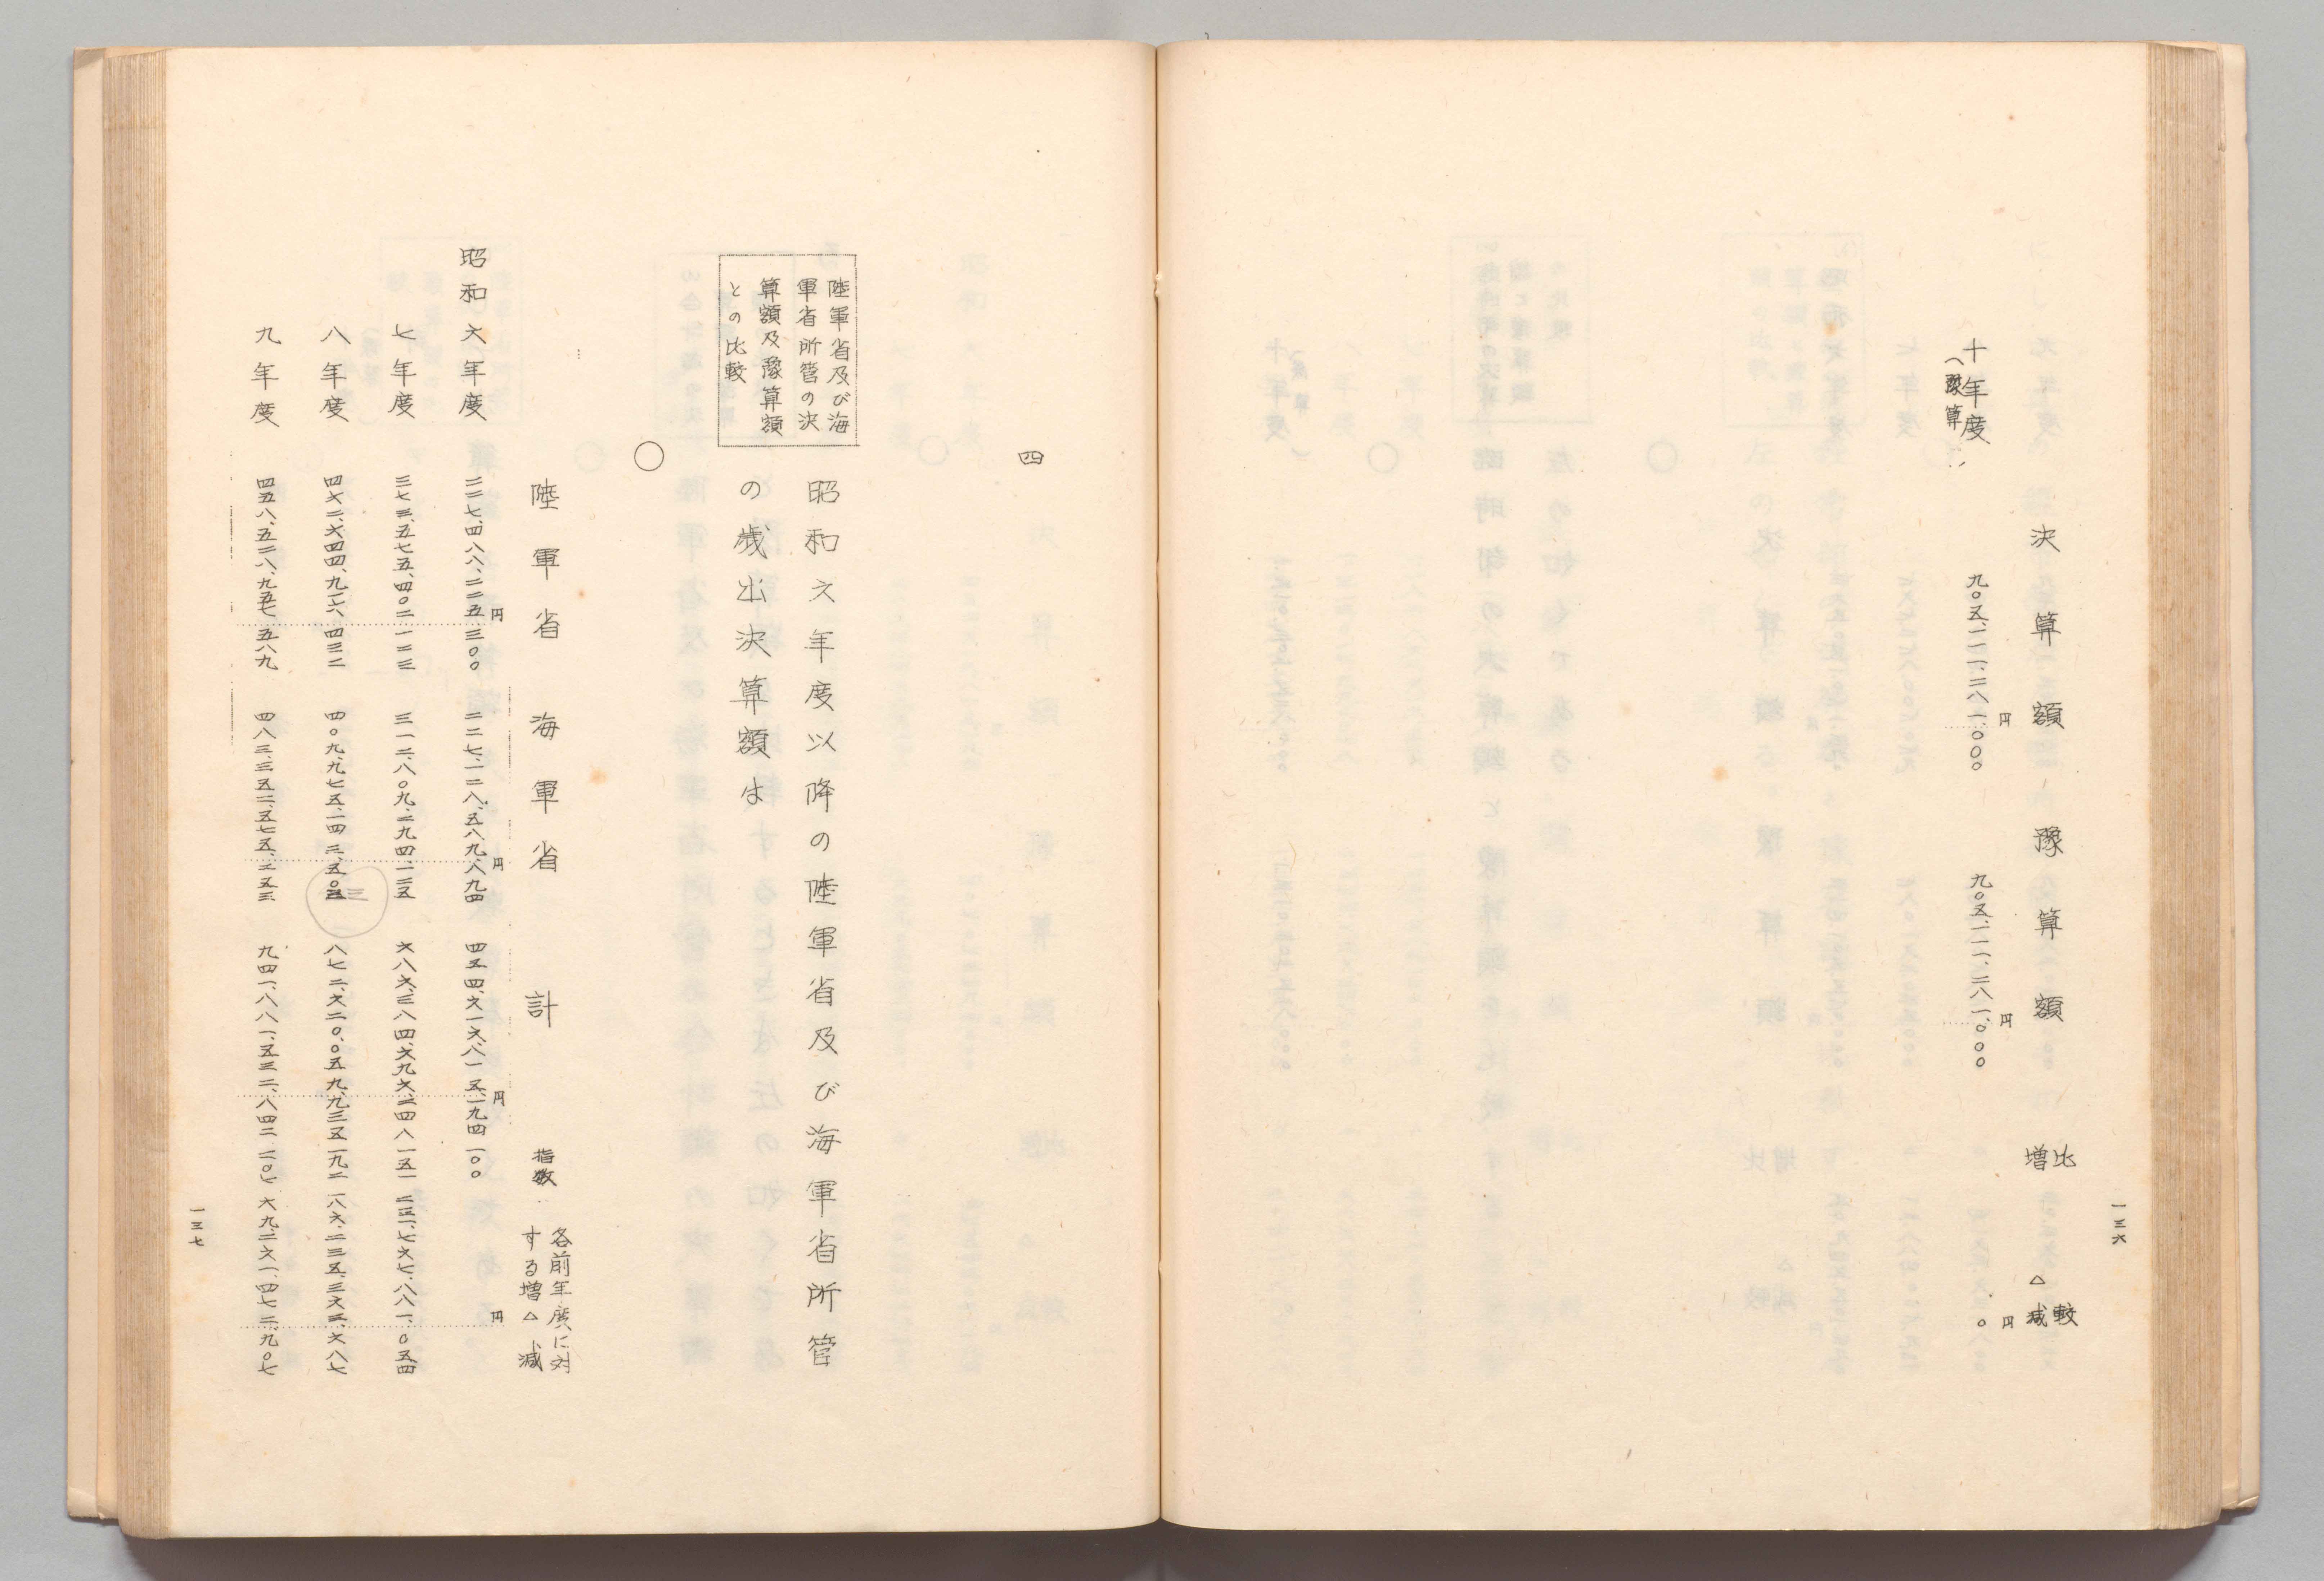 一三六
決算額 豫算額 比較増△減
十年度(豫算) 九〇五、一一一、二八一、〇〇〇円 九〇五、一一一、二八一、〇〇〇円 〇円
四
陸軍省及び海
軍省所管の決
算額及豫算額
との比較
昭和六年度以降の陸軍省及び海軍省所管
の歳出決算額は
○
陸軍省 海軍省 計 指数 各前年度に対する増△減
昭和六年度 二二七、四八八、二二五、三〇〇円 二二七、一二八、五八九、八九四円 四五四、六一六、八一五、一九四円 一〇〇 円
七年度 三七三、五七五、四〇二、一二三 三一二、八〇九、二九四、一二五 六八六、三八四、六九六、二四八 一五一 二三一、七六七、八八一、〇五四
八年度 四六二、六四四、九一六、四三二 四〇九、九七五、一四三、五〇三 八七二、六二〇、〇五九、九三五 一九二 一八六、二三五、三六三、六八七
九年度 四五八、五二八、九五七、五八九 四八三、三五二、五七五、二五三 九四一、八八一、五三二、八四二 二〇七 六九、二六一、四七二、九〇七
一三七